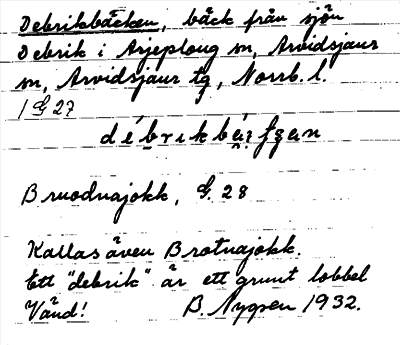 Debrikbäcken, bäck från sjön
Debrik i Arjeploug sn, Arvidsjaur
sn, Arvidsjaur tg, Norrb. l.
1 G 27
débrikbä
Bruodnajokk, G. 28
Kallas även Brotnajokk.
Ett "debrik" är ett grunt lobbel
Vänd! B. Nygren 1932.